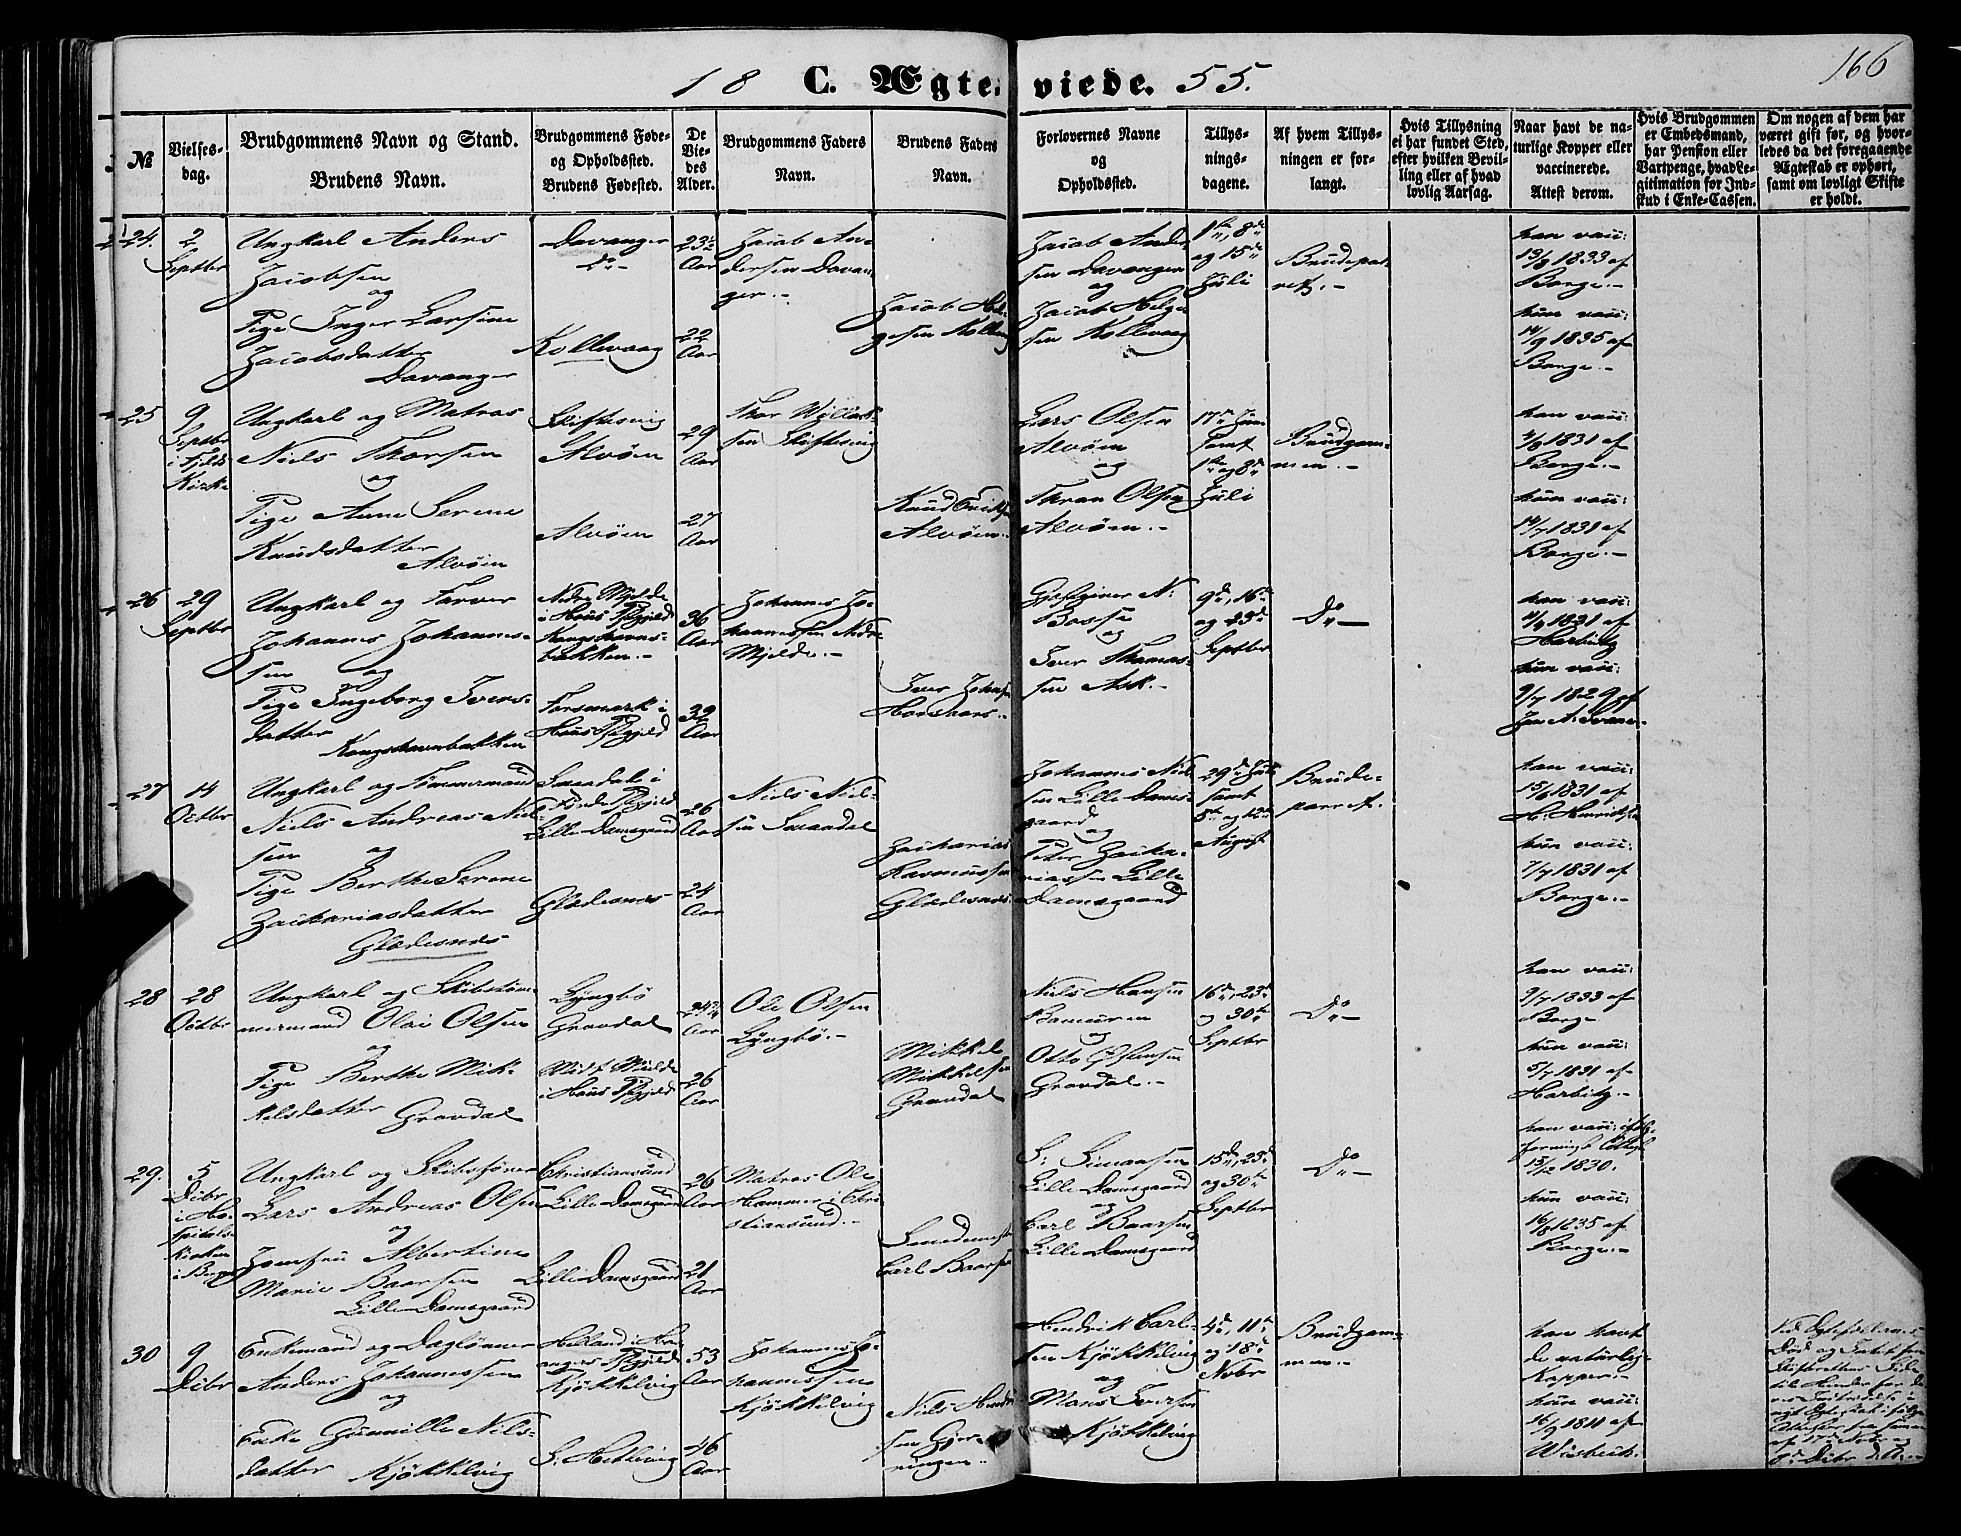 166
18 C. Ægteviede. 55.
№
Vielses-
dag.
Brudgommens Navn og Stand.
Brudens Navn.
Brudgommens Føde-
og Opholdssted.
Brudens Fødested.
De
Vie-
des
Alder.
Brudgommens Faders
Navn.
Brudens Faders
Navn.
Forlovernes Navne
og
Opholdssted.
Tillys-
nings-
dagene.
Af hvem Tillys-
ningen er for-
langt.
Hvis Tillysning
ei har fundet Sted,
efter hvilken Bevil-
ling eller af hvad
lovlig Aarsag.
Naar havt de na-
turlige Kopper eller
vaccinerede.
Attest derom.
Hvis Brudgommen
er Embedsmand,
har Pension eller
Vartpenge, hvad Le-
gitimation for Ind-
skud i Enke-Cassen.
Om nogen af dem har
været gift før, og hvor-
ledes da det foregaaende
Ægteskab er ophørt,
samt om lovligt Skifte
er holdt.
24.
2
Septbr
Ungkarl Anders
Jacobsen
og
Pige Inger Larsine
Jacobsdatter
Davanger
Davanger
Do
Kollevaag
23½
Aar
22
Aar
Jacob An-
dersen Davan-
ger.-
Jacob Hel-
gesen Kollevaag
Jacob Ander-
sen Davanger
og
Jacob Helge-
sen Kollevaag
1ste, 8de
og 15de
Juli
Brudepar-
ret.-
han vacc:
13/8 1833 af
Borge.-
hun vacc:
14/9 1835 af
Borge.-
25
9
Septbr
i Fjelds
Kirke
Ungkarl og Matros
Niels Thorsen
og
Pige Anne Serine
Knudsdatter
Alvøen
Skiftesvig
Alvøen
Alvøen
29
Aar
27
Aar
Thor Willas-
sen Skiftesvig
Knud Eriksen
Alvøen.-
Lars Olsen
Alvøen
og
Thran Olsen
Alvøen.-
17de Juni
samt
1ste og 8de
Juli
Brudgom-
men.-
han vacc:
4/9 1831 af
Borge.-
hun vacc:
14/7 1831 af
Borge.-
26
29
Septbr
Ungkarl og Farver
Johannes Johannes-
sen og
Pige Ingeborg Ivers-
datter
Kongshavnbakken
Nedre Mjelde
i Hous Pgjeld
Kongshavns-
bakken.-
Fossmark i
Hous Pgjeld
36
Aar
32
Aar
Johannes Jo-
hannessen Nedre
Mjelde.-
Iver Johnsen
Gjestgiver N:
Bosse
og
Iver Thomas-
sen Ask.-
9de, 16de
og 23de
Septbr
Do
han vacc:
4/9 1831 af
Harbitz
hun vacc:
9/7 1829 af
27
14
Octbr
Ungkarl og Tømmermand
Niels Andreas Niel-
sen og
Pige Berthe Serine
Zachariasdatter
Glædesnes
i
Førde Pgjeld
Lille Damsgaard
Glædesnes
26
Aar
24
Aar
Niels Niel-
sen
Zacharias
Rasmussen
Glædesnes
Johannes Niel-
sen Lille Dams-
gaard
og
Peter Zacha-
riassen Lille
Damsgaard
29de Juli
samt
5te og 12te
August
Brude-
parret.
han vacc:
15/6 1831 af
H: Henriksen
hun vacc:
7/7 1831 af
Borge.-
28
28
Octbr
Ungkarl og Skibstøm-
mermand Olai Olsen
og
Pige Berthe Mik-
kelsdatter Gravdal
Lyngbø
Gravdal
Midt Mielde
i Hous Pgjeld
24½
Aar
26
Aar
Ole Olsen
Lyngbø.-
Mikkel
Mikkelsen
Gravdal
Niels Hansen
og
Otto Østensen
Gravdal.-
16de, 23de
og 30te
Septbr
Do
han vacc:
9/7 1833 af
Borge
hun vacc:
5/7 1831 af
Harbitz.-
29.
5
Decbr
i Ho-
spitals
Kirken
i Bergen
Ungkarl og
Lars Andreas Olsen
og
Jomfru Albertine
Marie Baarsen
Lille Damsgaard
Christiansund
Lille Damsgaard
Lille Damsgaard
26
Aar
21
Aar
Matros Ole
Hammer i Chri-
stiansund.-
Carl Baarsen
S: Simonsen
Lille Damsgaard
og
Carl Baarsen
Lille Damsgaard
15de, 23de
og 30te
Septbr
Do
han vacc:
15/2 1830.
hun vacc:
16/8 1835 af
Borge.-
30
9
Decbr
Enkemand og Daglønner
Anders Johannessen
og
Enke Gunnille Nils-
datter Kjøkkelvig
Helland i Ham-
angers Pgjeld
Kjøkkelvig
S: Hetlevig
53
Aar
46
Aar
Johannes Jo-
hannessen
Kjøkkelvig
Niels
Hendrik Carl-
sen Kjøkkelvig
og
Mons Iversen
Kjøkkelvig
4de, 11te
og 18de
Novbr
Brudgom-
men.-
han havt
de naturlig-
Kopper.-
hun vacc:
16/9 1811 af